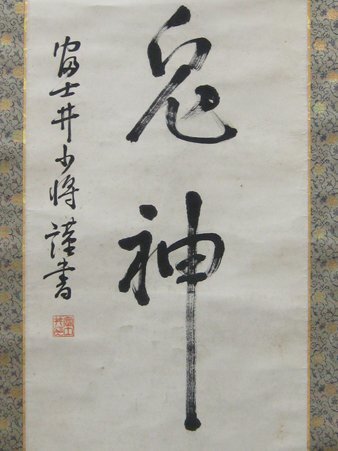 鬼神
富士井少将謹書